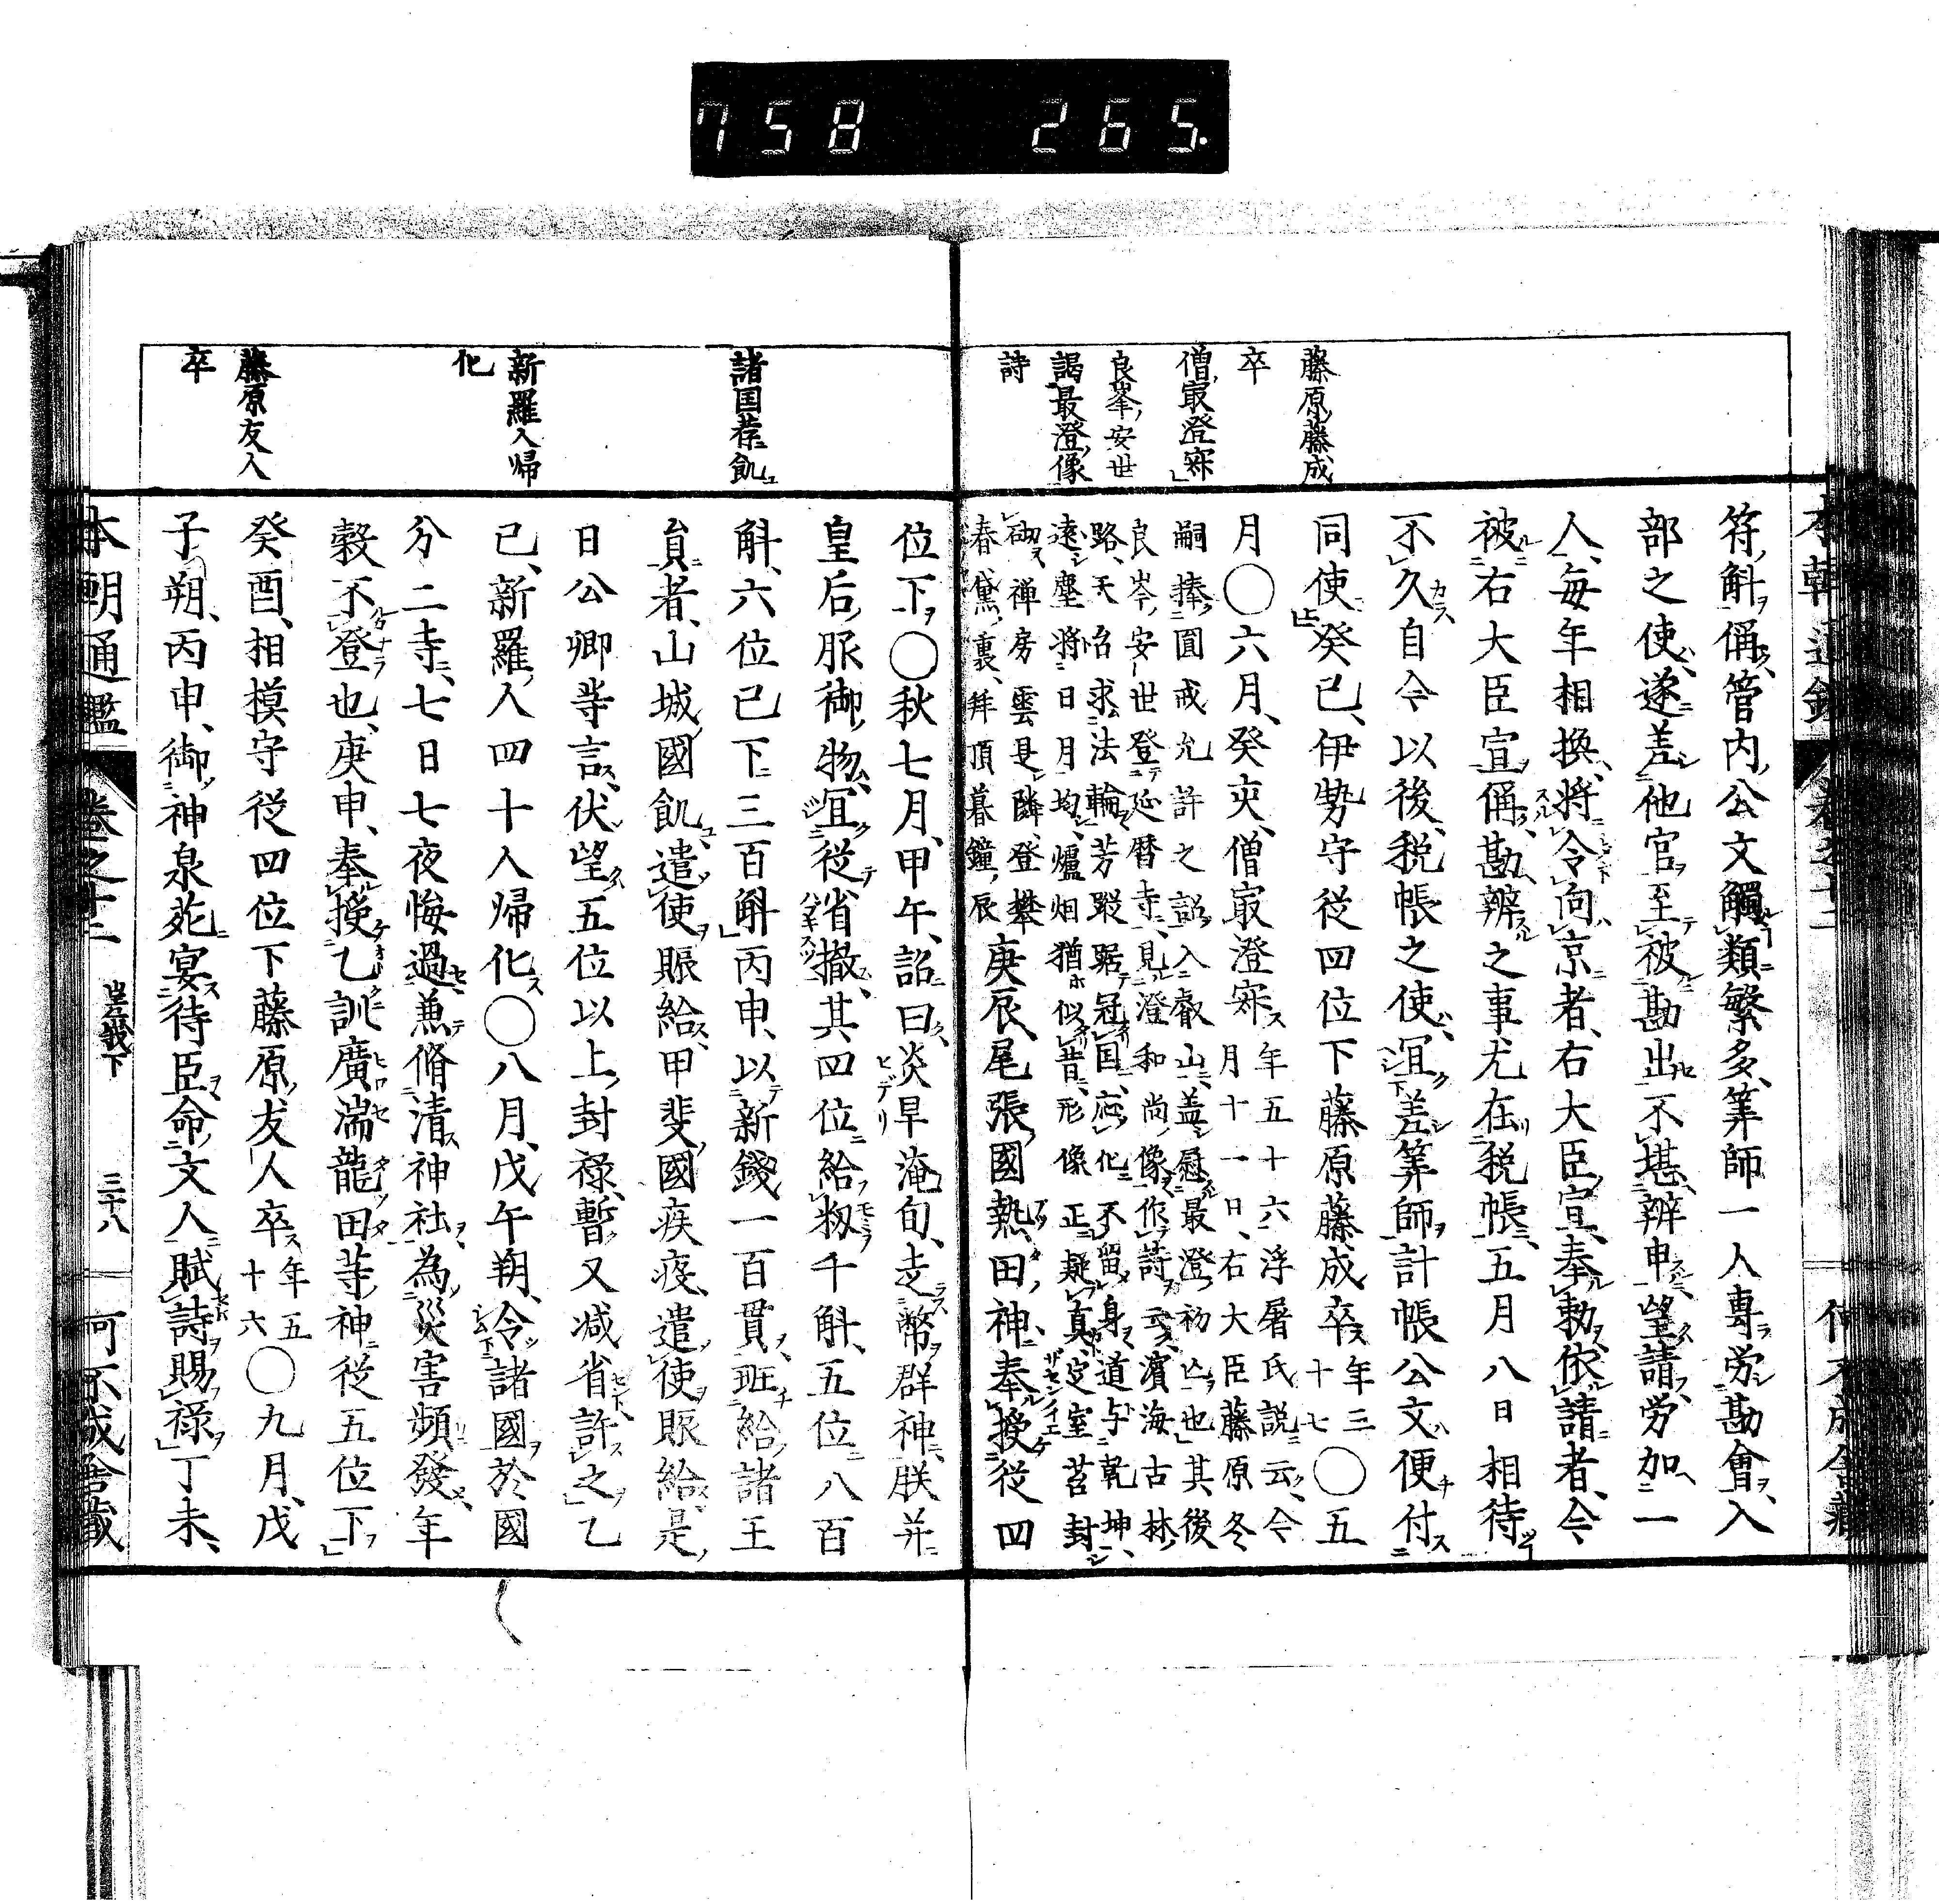 758 265.
藤原藤成
卒
僧最澄寂
良峯安世
謁最澄像
詩
符解偁管内公文觸類繁多筭師一人專労勘會入
部之使遂差他官至被勘出不堪辨申望請労加一
人毎年相換將令向京者右大臣宣奉勅依請者今
被右大臣宣偁勘辨之事尤在税帳五月八日相待
不久自今以後税帳之使宜差筭師計帳公文便付
同使癸巳伊勢守従四位下藤原藤成卒年三十七〇五
月〇六月癸亥僧㝡澄寂年五十六浮屠氏説云今
月十一日右大臣藤原冬
嗣捧圓戒允許之詔入叡山盖慰最澄初亡也其後
良岑安世登延暦寺見澄和尚像作詩云濱海古林
路天台求法輪芳蹤踞冠国応化不留身道与乾坤
遠塵將日月均爐烟猶似昔形像正疑真定室苔封
砌禅房雲是隣登攀
春黛裏拜頂暮鐘辰
庚辰尾張國熱田神奉授従四
諸国荐飢
新羅人帰
化
藤原友人
卒
位下〇秋七月甲午詔曰炎旱淹旬走幣群神朕并
皇后服御物宜従省撤其四位給籾千斛五位八百
斛六位已下三百斛丙申以新錢一百貫班給諸王
貟者山城國飢遣使賑給甲斐國疾疫遣使賑給是
日公卿等言伏望五位以上封禄暫又减省許之乙
已新羅人四十人帰化〇八月戊午朔令諸國於國
分二寺七日七夜悔過兼脩清神社為災害頻發年
穀不登也庚申奉授乙訓廣湍龍田等神従五位下
癸酉相摸守従四位下藤原友人卒年五十六〇九月戊
子朔丙申御神泉苑宴待臣命文人賦詩賜禄丁未
本朝通鑑 巻之十二 嵯峨下 三十八